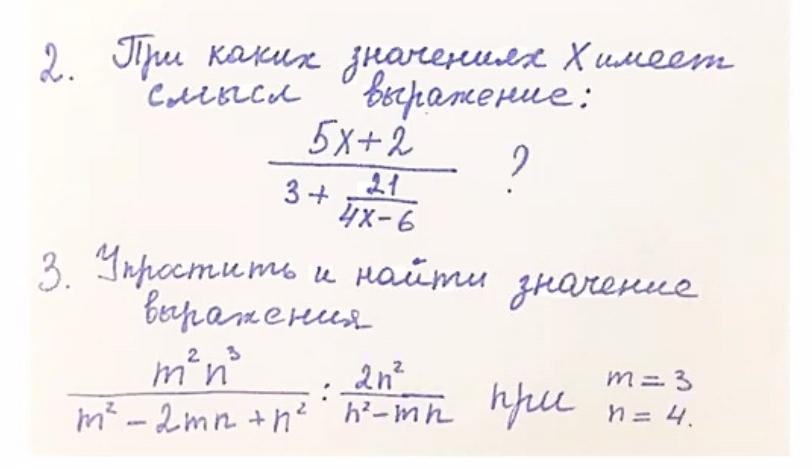 2. При каких значениях x имеет
смысл выражение:
(5x+2)/(3 + 21/(4x-6)) ?
3. Упростить и найти значение
выражения
(m²n³)/(m² - 2mn + n²) : (2n²)/(n² - mn) при m = 3 n = 4.